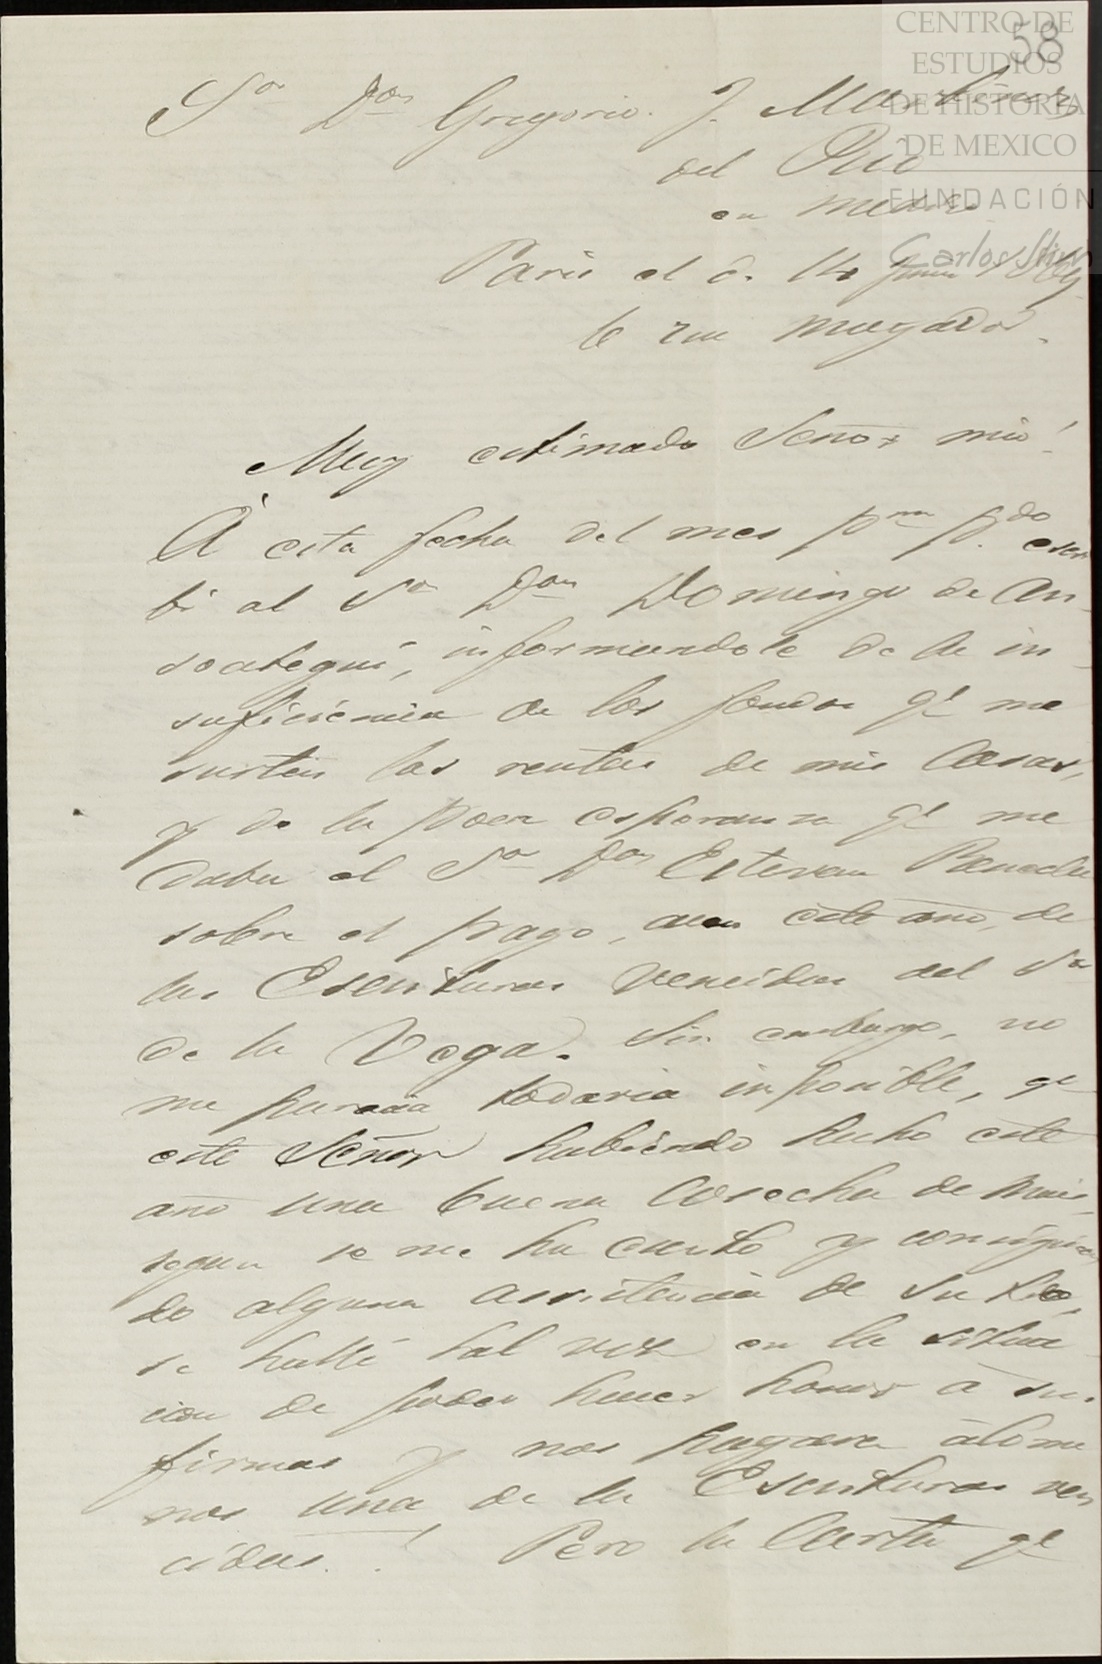 CENTRO DE
ESTUDIOS
DE HISTORIA
DE MEXICO
FUNDACIÓN
Carlos Slim
58
Sor Don Gregorio. J. Martinez
del Rio
en Mexico
Paris el d. 14
6 rue Mogador.
Muy estimado Señor mio!
À esta fecha del mes pmo pdo escri
bi al Sor Don Domingo de An-
soategui, informandole de la in-
suficiencia de los fondos qe me
surten las rentas de mis Casas,
y de la poca esperanza qe me
daba el Sor Don Estevan
sobre el pago, aun este año, de
las Escrituras vencidas del Sor
de la Vega. Sin embargo, no
me parecia todavia imposible, qe
este Señor habiendo hecho este
año una buena Cosecha de Mais,
segun se me ha escrito y consiguien
do alguna assistencia de su tio,
se hallé tal vez en la situa
cion de poder hacer honor à sus
firmas y nos pagara àlome
nos una de la Escrituras ven
cidas.! Pero la Carta qe